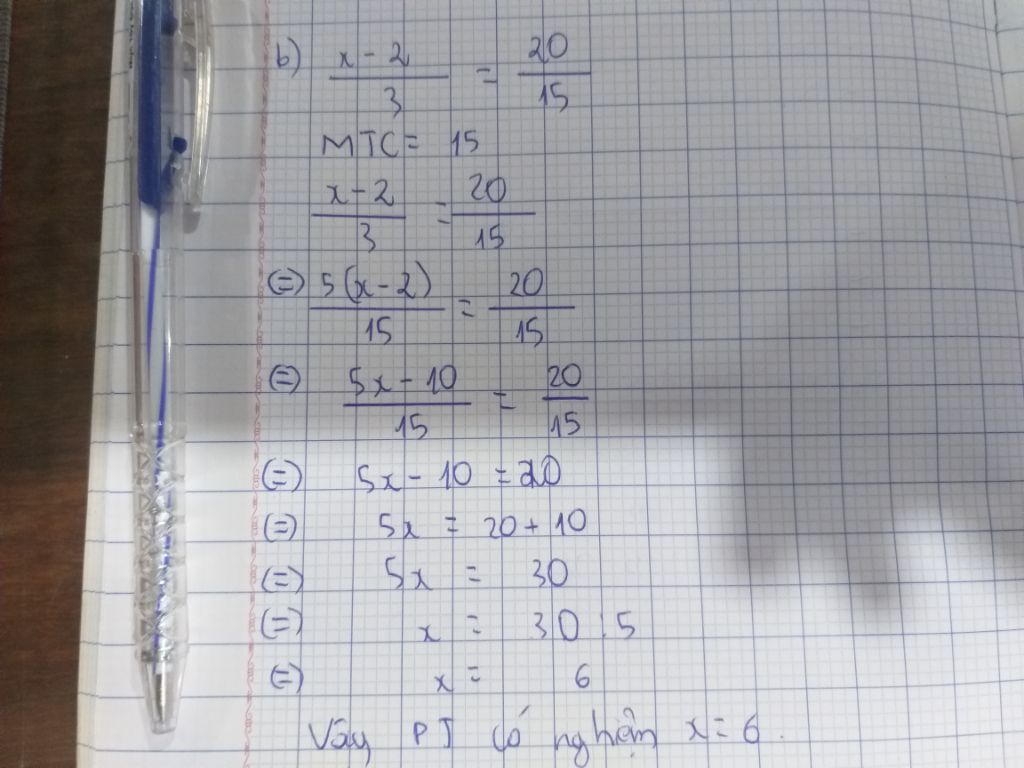 b) x - 2 / 3 = 20 / 15
MTC = 15
x - 2 / 3 = 20 / 15
(=) 5(x - 2) / 15 = 20 / 15
(=) 5x - 10 / 15 = 20 / 15
(=) 5x - 10 = 20
(=) 5x = 20 + 10
(=) 5x = 30
(=) x = 30 : 5
(=) x = 6
Vậy PT có nghiệm x = 6.